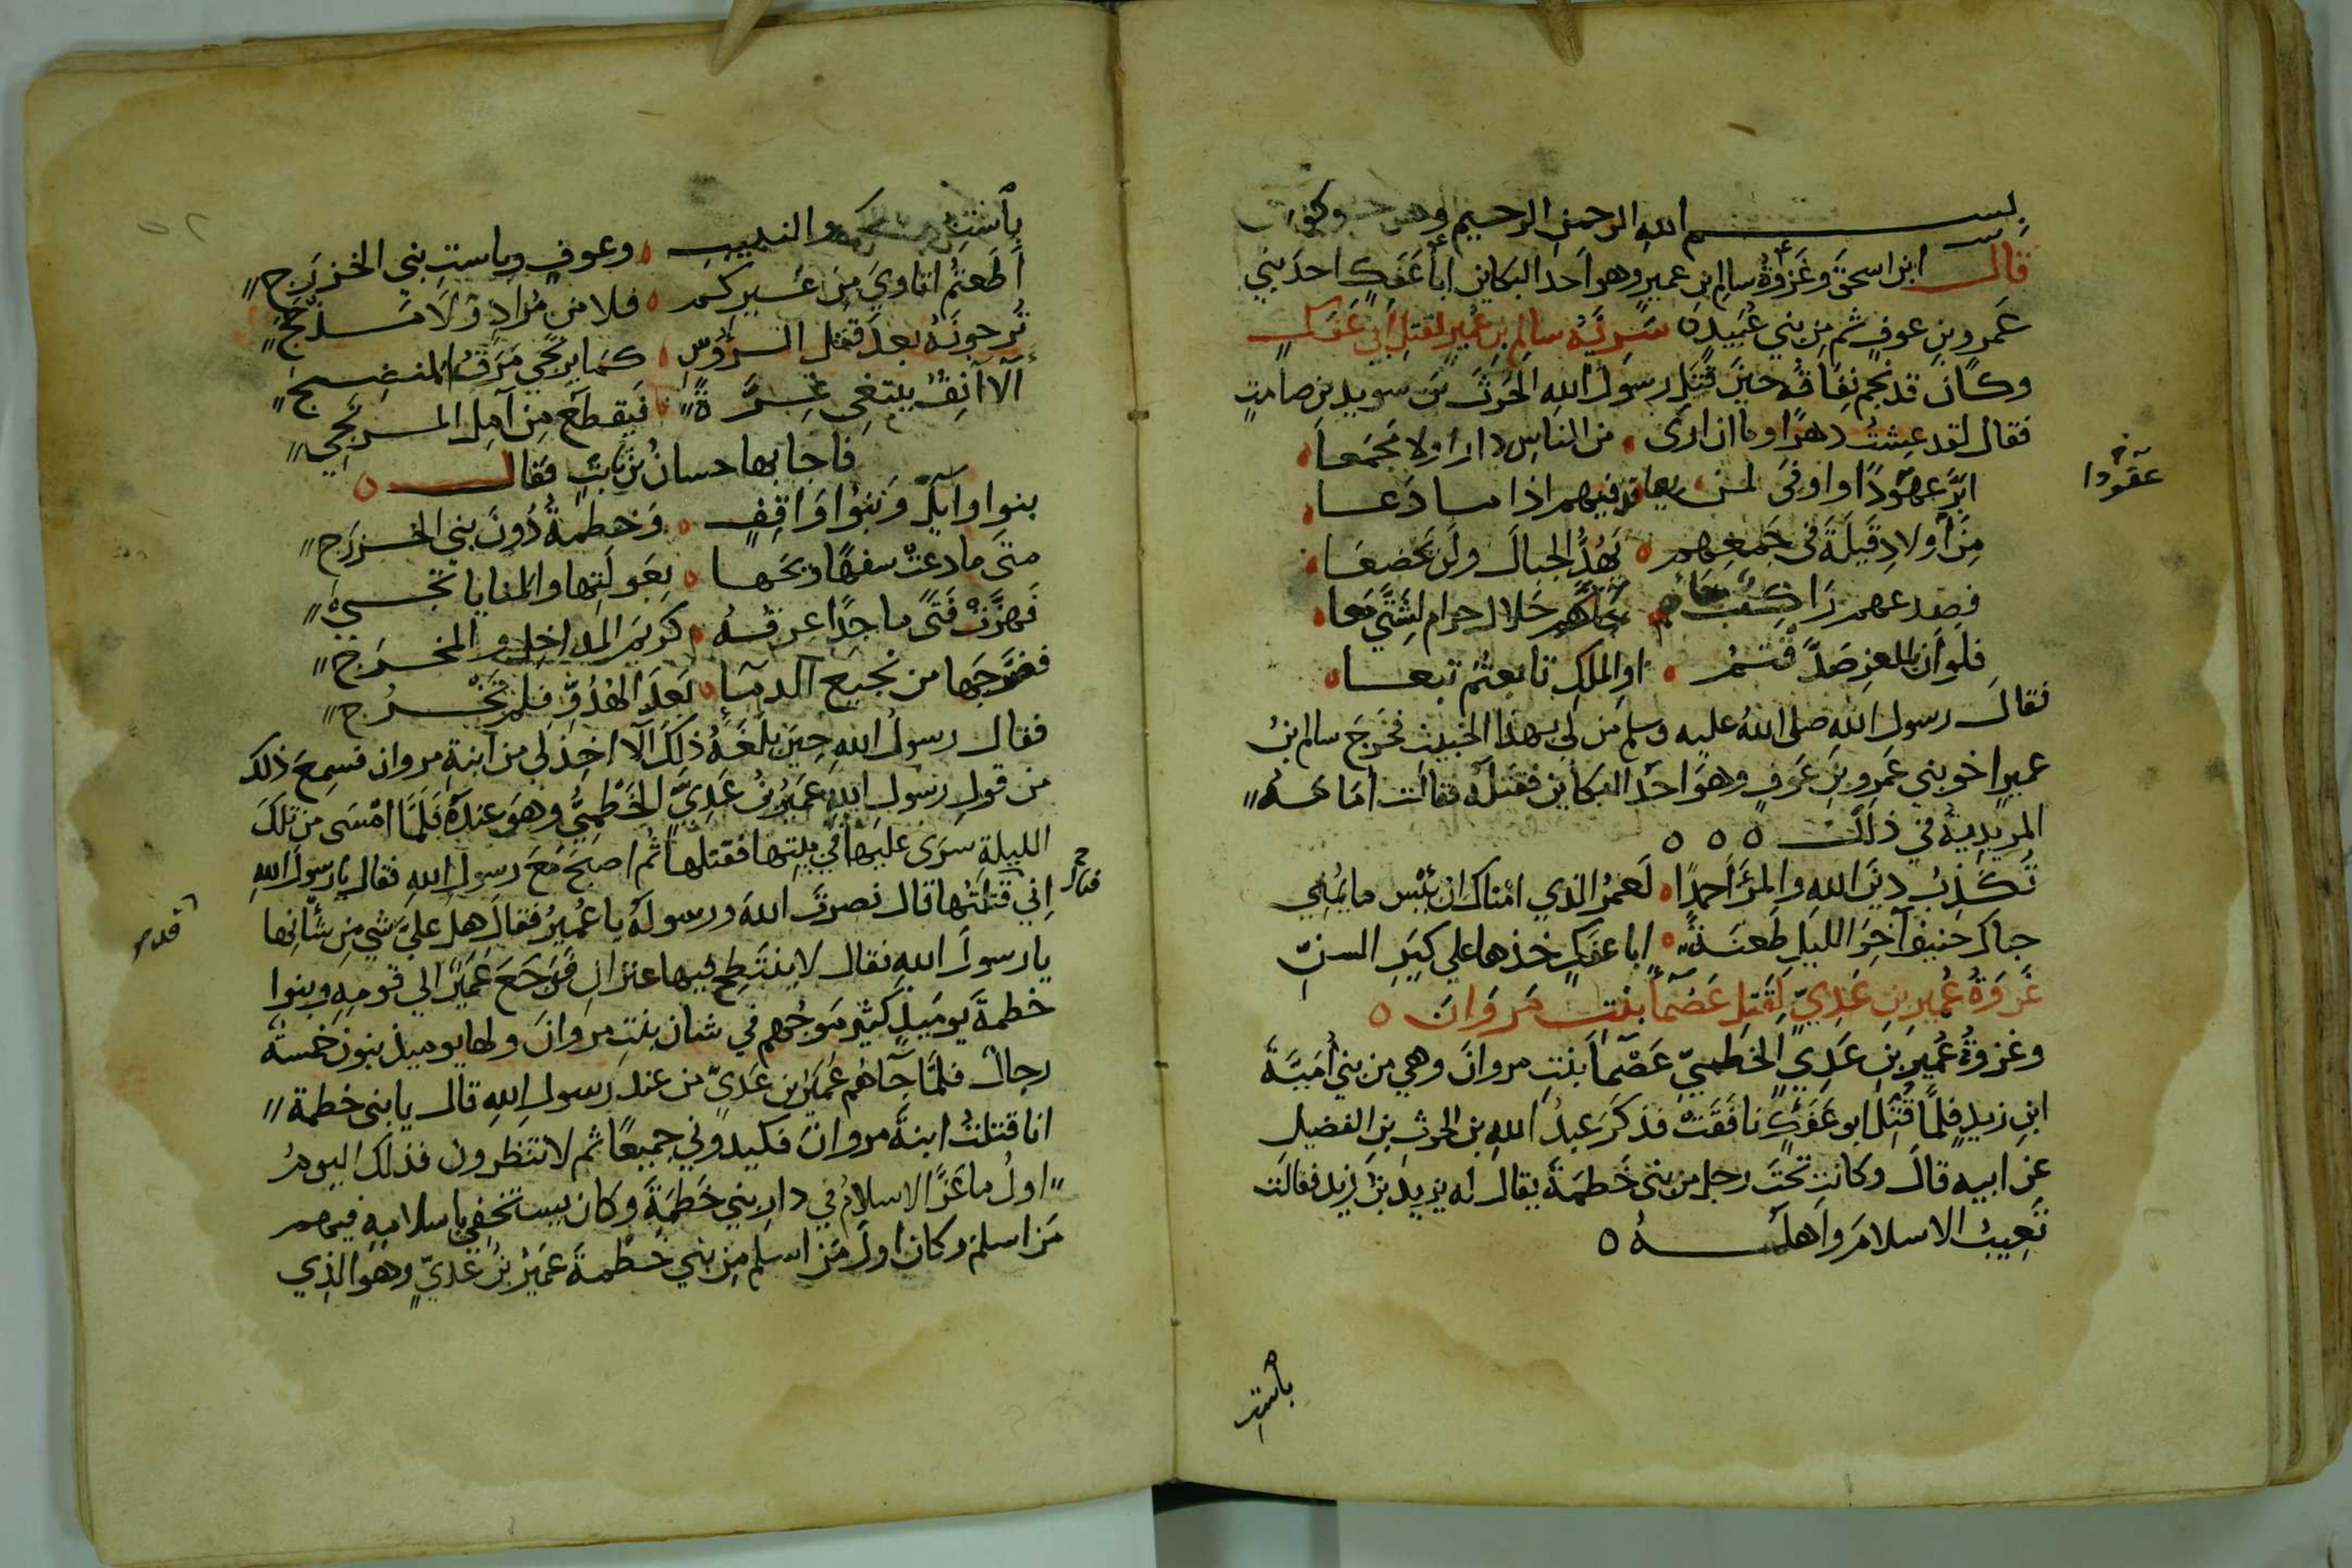 بسم الله الرحمن الرحيم وهو حسبي وكفى
قال ابن اسحق وغزوة سالم ابن عمير وهو احد البكاين ابا عفك احد بني
عمرو بن عوف ثم من بني عبيدة سرية سالم بن عمير لقتل ابي عفك
وكان قد نجم نفاقه حين قتل رسول الله الحرث بن سويد بن صامت
فقال لقد عشت دهرا وما ان ارى من الناس دارا ولا مجمعا
ابر عهودا واوفى لمن يعاقد فيهم اذا ما دعا
عقودا
من أولاد قيلة في جمعهم يهد الجبال ولن يخضعا
فصدعهم راكب جاءهم حلال حرام لشتى معا
فلو أن بالعز صدقتم او الملك تابعتم تبعا
فقال رسول الله صلى الله عليه وسلم من لي بهذا الخبيث فخرج سالم بن
عمير اخو بني عمرو بن عوف وهو احد البكاين فقتله فقالت امامة
المريدية في ذلك
تكذب دين الله والمرء أحمدا لعمر الذي امناك ان بئس ما يمني
حباك حنيف آخر الليل طعنة ابا عفك خذها على كبر السن
غزوة عمير بن عدي لقتل عصما بنت مروان
وغزوة عمير بن عدي الخطمي عصما بنت مروان وهي من بني أمية
ابن زيد فلما قتل ابو عفك نافقت فذكر عبد الله بن الحرث بن الفضيل
عن ابيه قال وكانت تحت رجل من بني خطمة يقال له يزيد بن زيد فقالت
تعيب الاسلام واهله
باست
باست والنبيت وعوف وباست بني الخزرج
أطعتم اتاوي من غيركم فلا من مراد ولا مذحج
ترجونه بعد قتل الرؤس كما يرتجى مرق المنضج
ألا آنف يبتغي غرة فيقطع من آمل المرتجي
فاجابها حسان بن ثابت فقال
بنوا وآيل وبنوا واقف وخطمة دون بني الخزرج
متى ما دعت سفها ويحها بعولتها والمنايا تجي
فهزت فتى ماجدا عرقه كريم المداخل والمخرج
فضرجها من نجيع الدما بعد الهدو فلم تخرج
فقال رسول الله حين بلغه ذلك ألا اخذ لي من آبنة مروان فسمع ذلك
من قول رسول الله عمير بن عدي الخطمي وهو عنده فلما امسى من تلك
الليلة سرى عليها في بيتها فقتلها ثم اصبح مع رسول الله فقال يا رسول الله
اني قتلتها قال نصرت الله ورسوله يا عمير فقال هل علي شي من شأنها
يا رسول الله فقال لا ينتطح فيها عنزان فرجع عمير الى قومه وبنوا
خطمة يوميذ كثير موجهم في شان بنت مروان ولها يوميذ بنون خمسة
رجال فلما جآهم عمير ابن عدي من عند رسول الله قال يا بني خطمة
انا قتلت ابنة مروان فكيدوني جميعا ثم لا تنظرون فذلك اليوم
اول ما عز الاسلام في دار بني خطمة وكان يستخفي باسلامه فيهم
من اسلم وكان اول من اسلم من بني خطمة عمير بن عدي وهو الذي